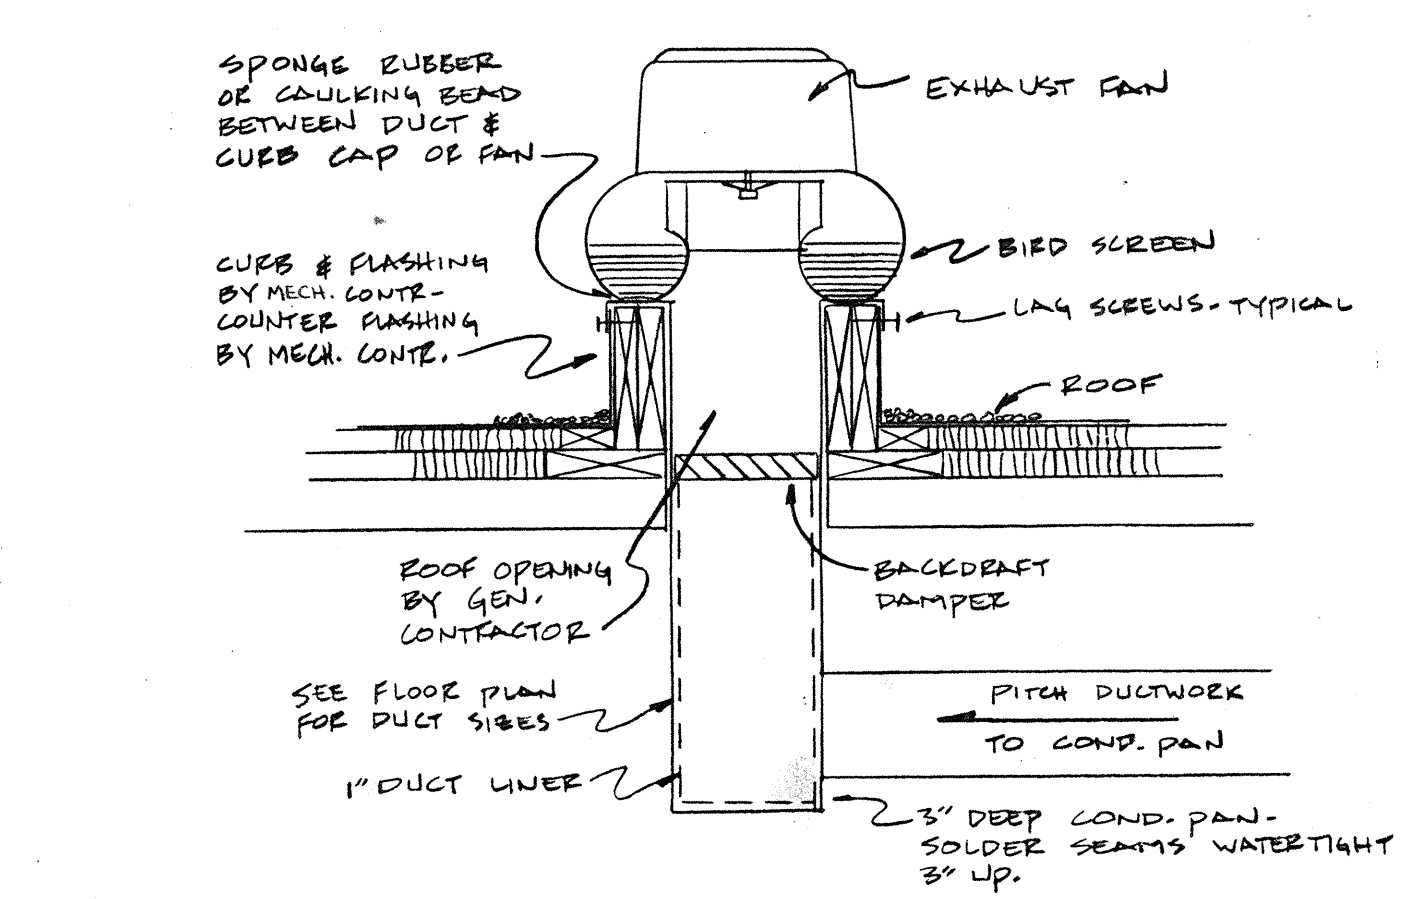 SPONGE RUBBER
OR CAULKING BEAD
BETWEEN DUCT &
CURB CAP OR FAN
EXHAUST FAN
CURB & FLASHING
BY MECH. CONTR-
COUNTER FLASHING
BY MECH. CONTR.
BIRD SCREEN
LAG SCREWS-TYPICAL
ROOF
ROOF OPENING
BY GEN.
CONTRACTOR
BACKDRAFT
DAMPER
SEE FLOOR PLAN
FOR DUCT SIZES
PITCH DUCTWORK
TO COND. PAN
1" DUCT LINER
3" DEEP COND. PAN-
SOLDER SEAMS WATERTIGHT
3" UP.